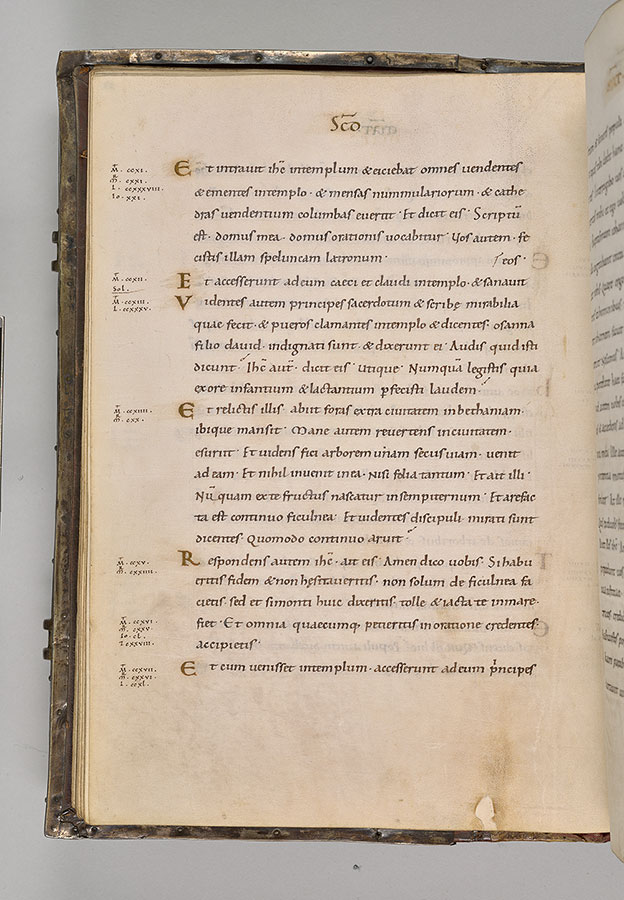 Scō
M̄. ccxi.
M̄. cxxi.
L. ccxxxviii.
Io. xxi.
Et intrauit ihc̄ in templum & eiciebat omnes uendentes
& ementes in templo · & mensas nummulariorum · & cathe
dras uendentium columbas euertit · Et dicit eis · Scriptū
est · domus mea · domus orationis uocabitur · Vos autem · fe
cistis illam speluncam latronum · eos ·
M̄. ccxii.
Sol.
Et accesserunt ad eum caeci et claudi in templo · & sanauit
M̄. ccxiii.
L. ccxxxv.
Videntes autem principes sacerdotum & scribę mirabilia
quae fecit · & pueros clamantes in templo & dicentes · osanna
filio dauid · indignati sunt · & dixerunt ei · Audis quid isti
dicunt · Ihc̄ aut̄ · dicit eis · Utique · Numquā legistis quia
ex ore infantium & lactantium pfecisti laudem ·
M̄. ccxiiii.
M̄. cxx.
Et relictis illis · abiit foras extra ciuitatem in bethaniam ·
ibique mansit · Mane autem reuertens in ciuitatem ·
esuriit · Et uidens fici arborem unam secus uiam · uenit
ad eam · Et nihil inuenit in ea · Nisi folia tantum · Et ait illi ·
Nū quam ex te fructus nascatur in sempiternum · Et arefac
ta est continuo ficulnea · Et uidentes discipuli · mirati sunt
dicentes · Quomodo continuo aruit ·
M̄. ccxv.
M̄. cxxiiii.
Respondens autem ihc̄ · ait eis · Amen dico uobis · Si habu
eritis fidem & non hesitaueritis · non solum de ficulnea fa
cietis · sed et si monti huic dixeritis · tolle & iacta te in mare ·
M̄. ccxvi.
M̄. cxxv.
Io. cl.
fiet · Et omnia quaecumq; petieritis in oratione credentes ·
accipietis ·
M̄. ccxvii.
M̄. cxxvi.
L. ccxl.
Et cum uenisset in templum · accesserunt ad eum principes